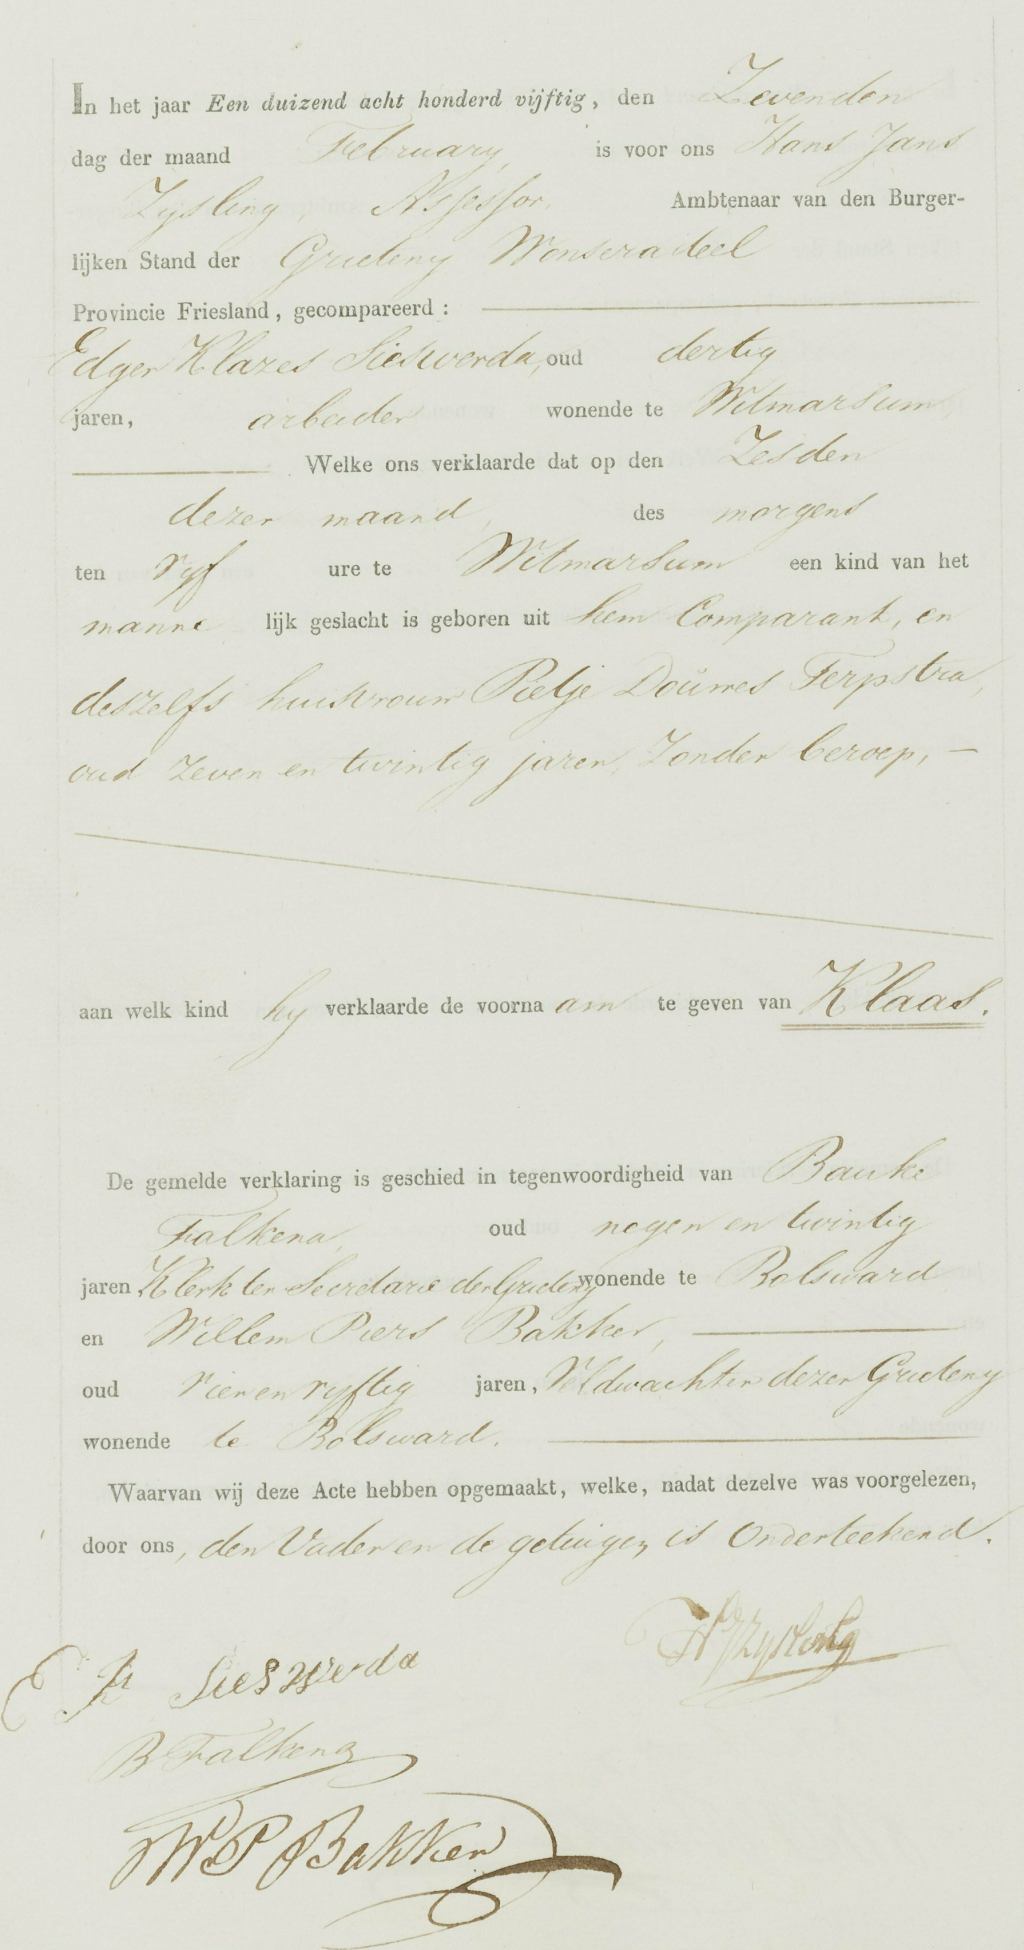 In het jaar Een duizend acht honderd vijftig, den Zevenden
dag der maand February, is voor ons Hans Jans
Zysling, Assessor, Ambtenaar van den Burger-
lijken Stand der Grieteny Wonseradeel
Provincie Friesland, gecompareerd :
Edger Klazes Sieswerda, oud dertig
jaren, arbeider wonende te Witmarsum,
Welke ons verklaarde dat op den Zesden
dezer maand, des morgens
ten vyf ure te Witmarsum een kind van het
manne lijk geslacht is geboren uit hem Comparant, en
deszelfs huisvrouw Pietje Douwes Terpstra,
oud zeven en twintig jaren, Zonder beroep, —
aan welk kind hy verklaarde de voorna am te geven van Klaas.
De gemelde verklaring is geschied in tegenwoordigheid van Bauke
Falkena, oud negen en twintig
jaren Klerk ter Secretarie der Grieteny wonende te Bolsward
en Willem Piers Bakker,
oud vier en vyftig jaren, Veldwachter dezer Grieteny
wonende te Bolsward.
Waarvan wij deze Acte hebben opgemaakt, welke, nadat dezelve was voorgelezen,
door ons, den Vader en de getuigen is Onderteekend.
HJZysling
E K Sieswerda
B Falkena
W P Bakker